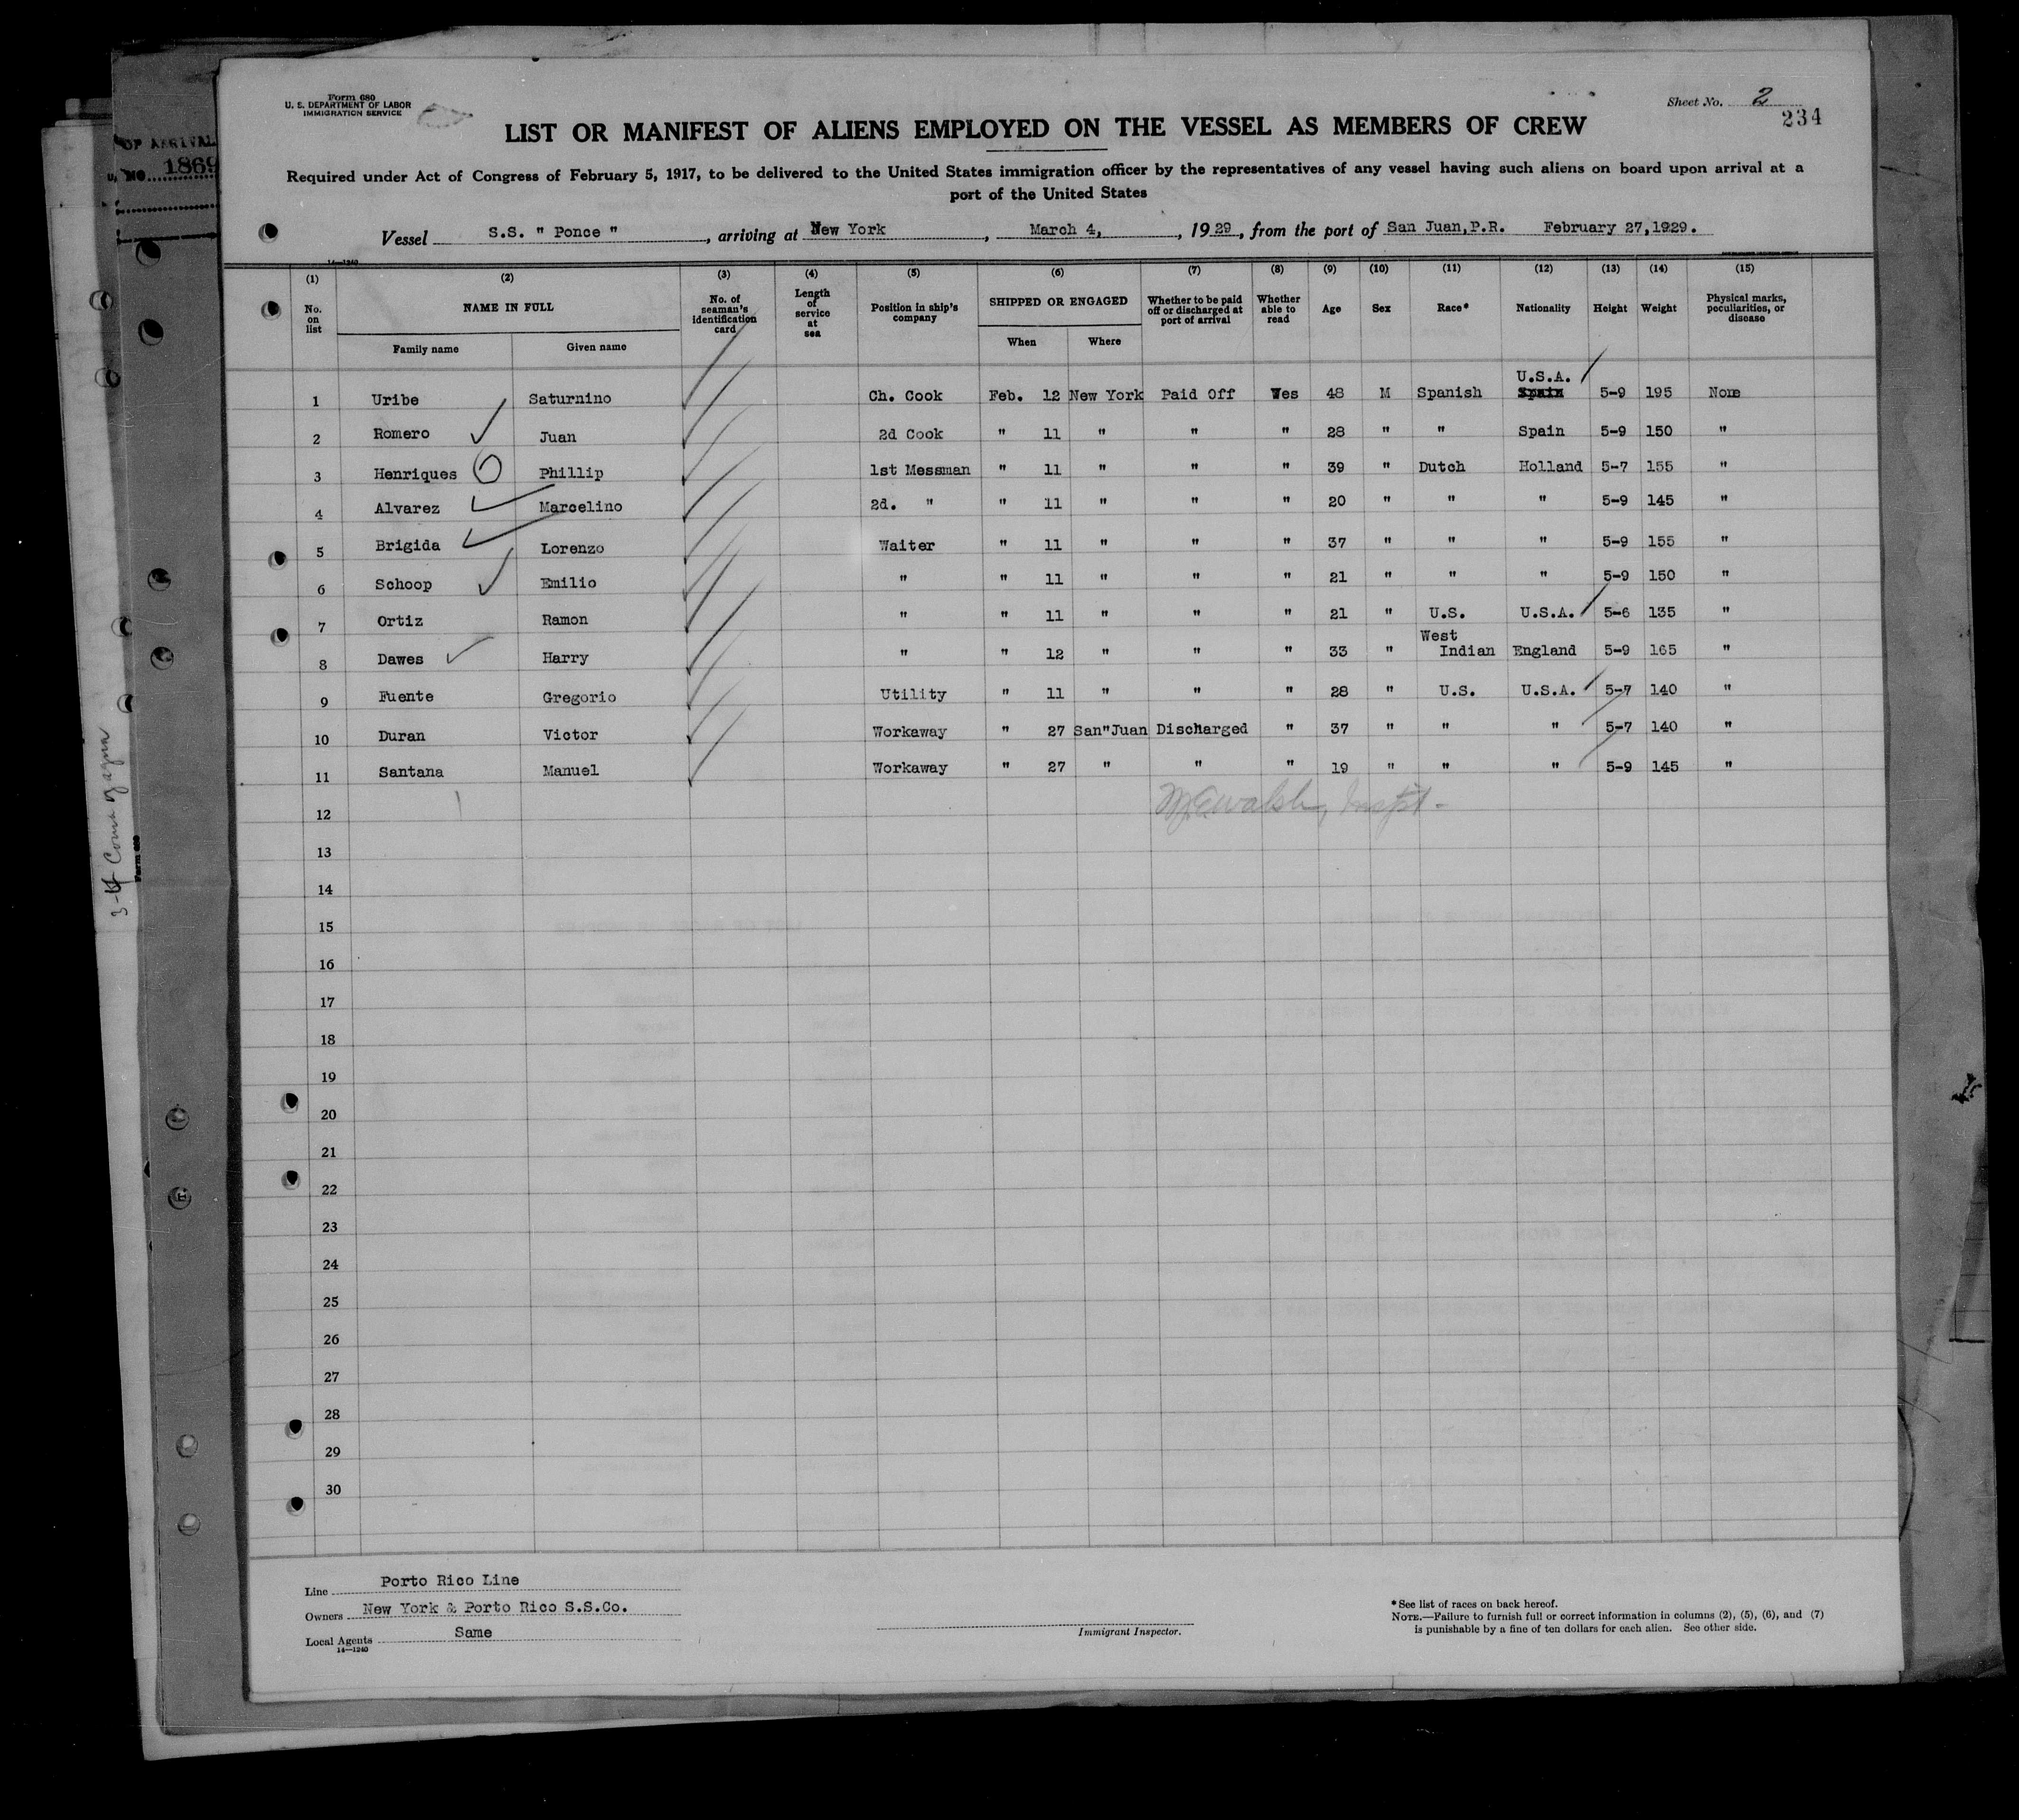 OF ARRIVAL
NO 1869
3-4 Coma
Form 680
Form 680
U. S. DEPARTMENT OF LABOR
IMMIGRATION SERVICE
Sheet No. 2
234
LIST OR MANIFEST OF ALIENS EMPLOYED ON THE VESSEL AS MEMBERS OF CREW
Required under Act of Congress of February 5, 1917, to be delivered to the United States immigration officer by the representatives of any vessel having such aliens on board upon arrival at a
port of the United States
Vessel S.S. " Ponce " , arriving at New York , March 4, , 1929, from the port of San Juan,P.R. February 27,1929.
14—1240
(1) (2) (3) (4) (5) (6) (7) (8) (9) (10) (11) (12) (13) (14) (15)
No. on list NAME IN FULL Family name Given name No. of seaman's identification card Length of service at sea Position in ship's company SHIPPED OR ENGAGED When Where Whether to be paid off or discharged at port of arrival Whether able to read Age Sex Race* Nationality Height Weight Physical marks, peculiarities, or disease
U.S.A.
1 Uribe Saturnino Ch. Cook Feb. 12 New York Paid Off Yes 48 M Spanish Spain 5-9 195 None
2 Romero Juan 2d Cook " 11 " " " 28 " " Spain 5-9 150 "
3 Henriques Phillip 1st Messman " 11 " " " 39 " Dutch Holland 5-7 155 "
4 Alvarez Marcelino 2d. " " 11 " " " 20 " " " 5-9 145 "
5 Brigida Lorenzo Waiter " 11 " " " 37 " " " 5-9 155 "
6 Schoop Emilio " " 11 " " " 21 " " " 5-9 150 "
7 Ortiz Ramon " " 11 " " " 21 " U.S. U.S.A. 5-6 135 "
8 Dawes Harry " " 12 " " " 33 " West Indian England 5-9 165 "
9 Fuente Gregorio Utility " 11 " " " 28 " U.S. U.S.A. 5-7 140 "
10 Duran Victor Workaway " 27 San"Juan Discharged " 37 " " " 5-7 140 "
11 Santana Manuel Workaway " 27 " " " 19 " " " 5-9 145 "
12 Walsh,
13
14
15
16
17
18
19
20
21
22
23
24
25
26
27
28
29
30
Line Porto Rico Line
Owners New York & Porto Rico S.S.Co.
Local Agents Same
14—1240
Immigrant Inspector.
* See list of races on back hereof.
NOTE.—Failure to furnish full or correct information in columns (2), (5), (6), and (7)
is punishable by a fine of ten dollars for each alien. See other side.